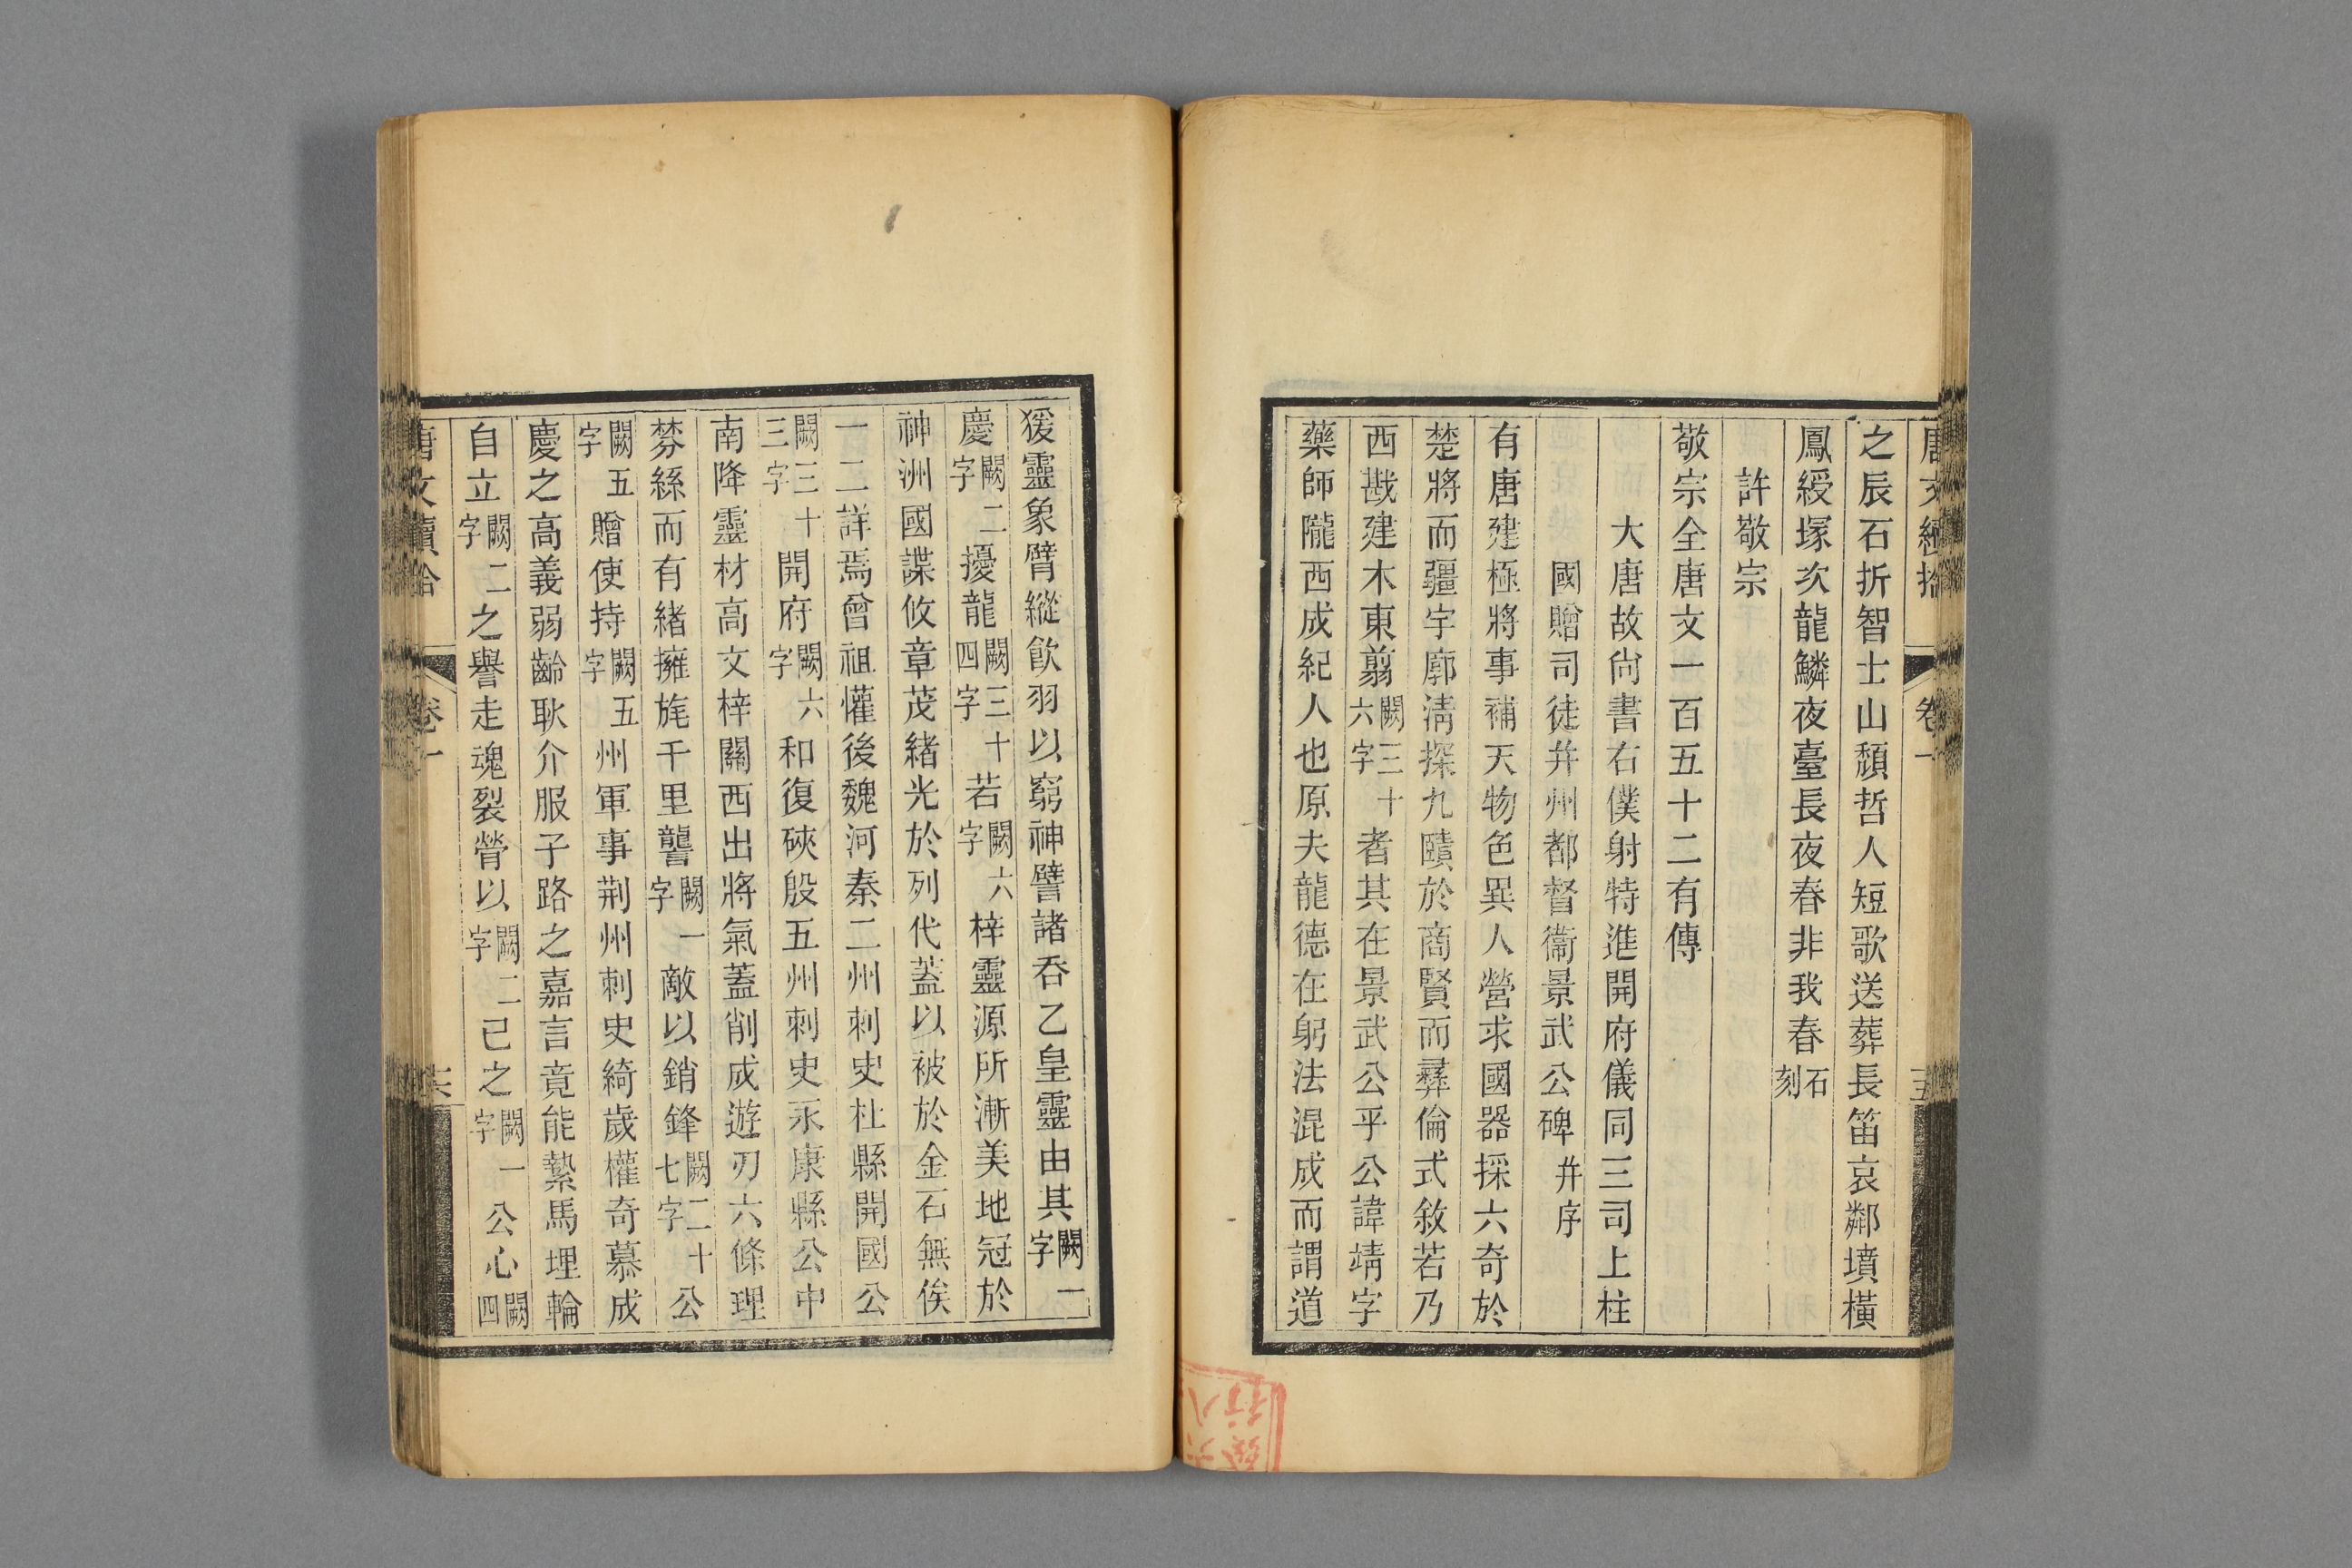 唐文續拾 卷一 十五
之辰石折智士山頹哲人短歌送葬長笛哀鄰墳橫
鳳綬塚次龍鱗夜臺長夜春非我春石刻
許敬宗
敬宗全唐文一百五十二有傳
大唐故尚書右僕射特進開府儀同三司上柱
國贈司徒幷州都督衞景武公碑幷序
有唐建極將事補天物色異人營求國器採六奇於
楚將而疆宇廓淸探九賾於商賢而彝倫式敘若乃
西戡建木東翦闕三十六字者其在景武公乎公諱靖字
藥師隴西成紀人也原夫龍德在躬法混成而謂道
猨靈象臂縱飮羽以窮神譬諸吞乙皇靈由其闕一字
慶闕二字擾龍闕三十四字若闕六字梓靈源所漸美地冠於
神洲國諜攸章茂緒光於列代蓋以被於金石無俟
一二詳焉曾祖懽後魏河秦二州刺史杜縣開國公
闕三十三字開府闕六字和復硤殷五州刺史永康縣公中
南降靈材高文梓關西出將氣蓋削成遊刃六條理
棼絲而有緒擁旄千里讋闕一字敵以銷鋒闕二十七字公
闕五字贈使持闕五字州軍事荆州刺史綺歲權奇慕成
慶之高義弱齡耿介服子路之嘉言竟能縶馬埋輪
自立闕二字之譽走魂裂膋以闕二字己之闕一字公心闕四
唐文續拾 卷一 十六